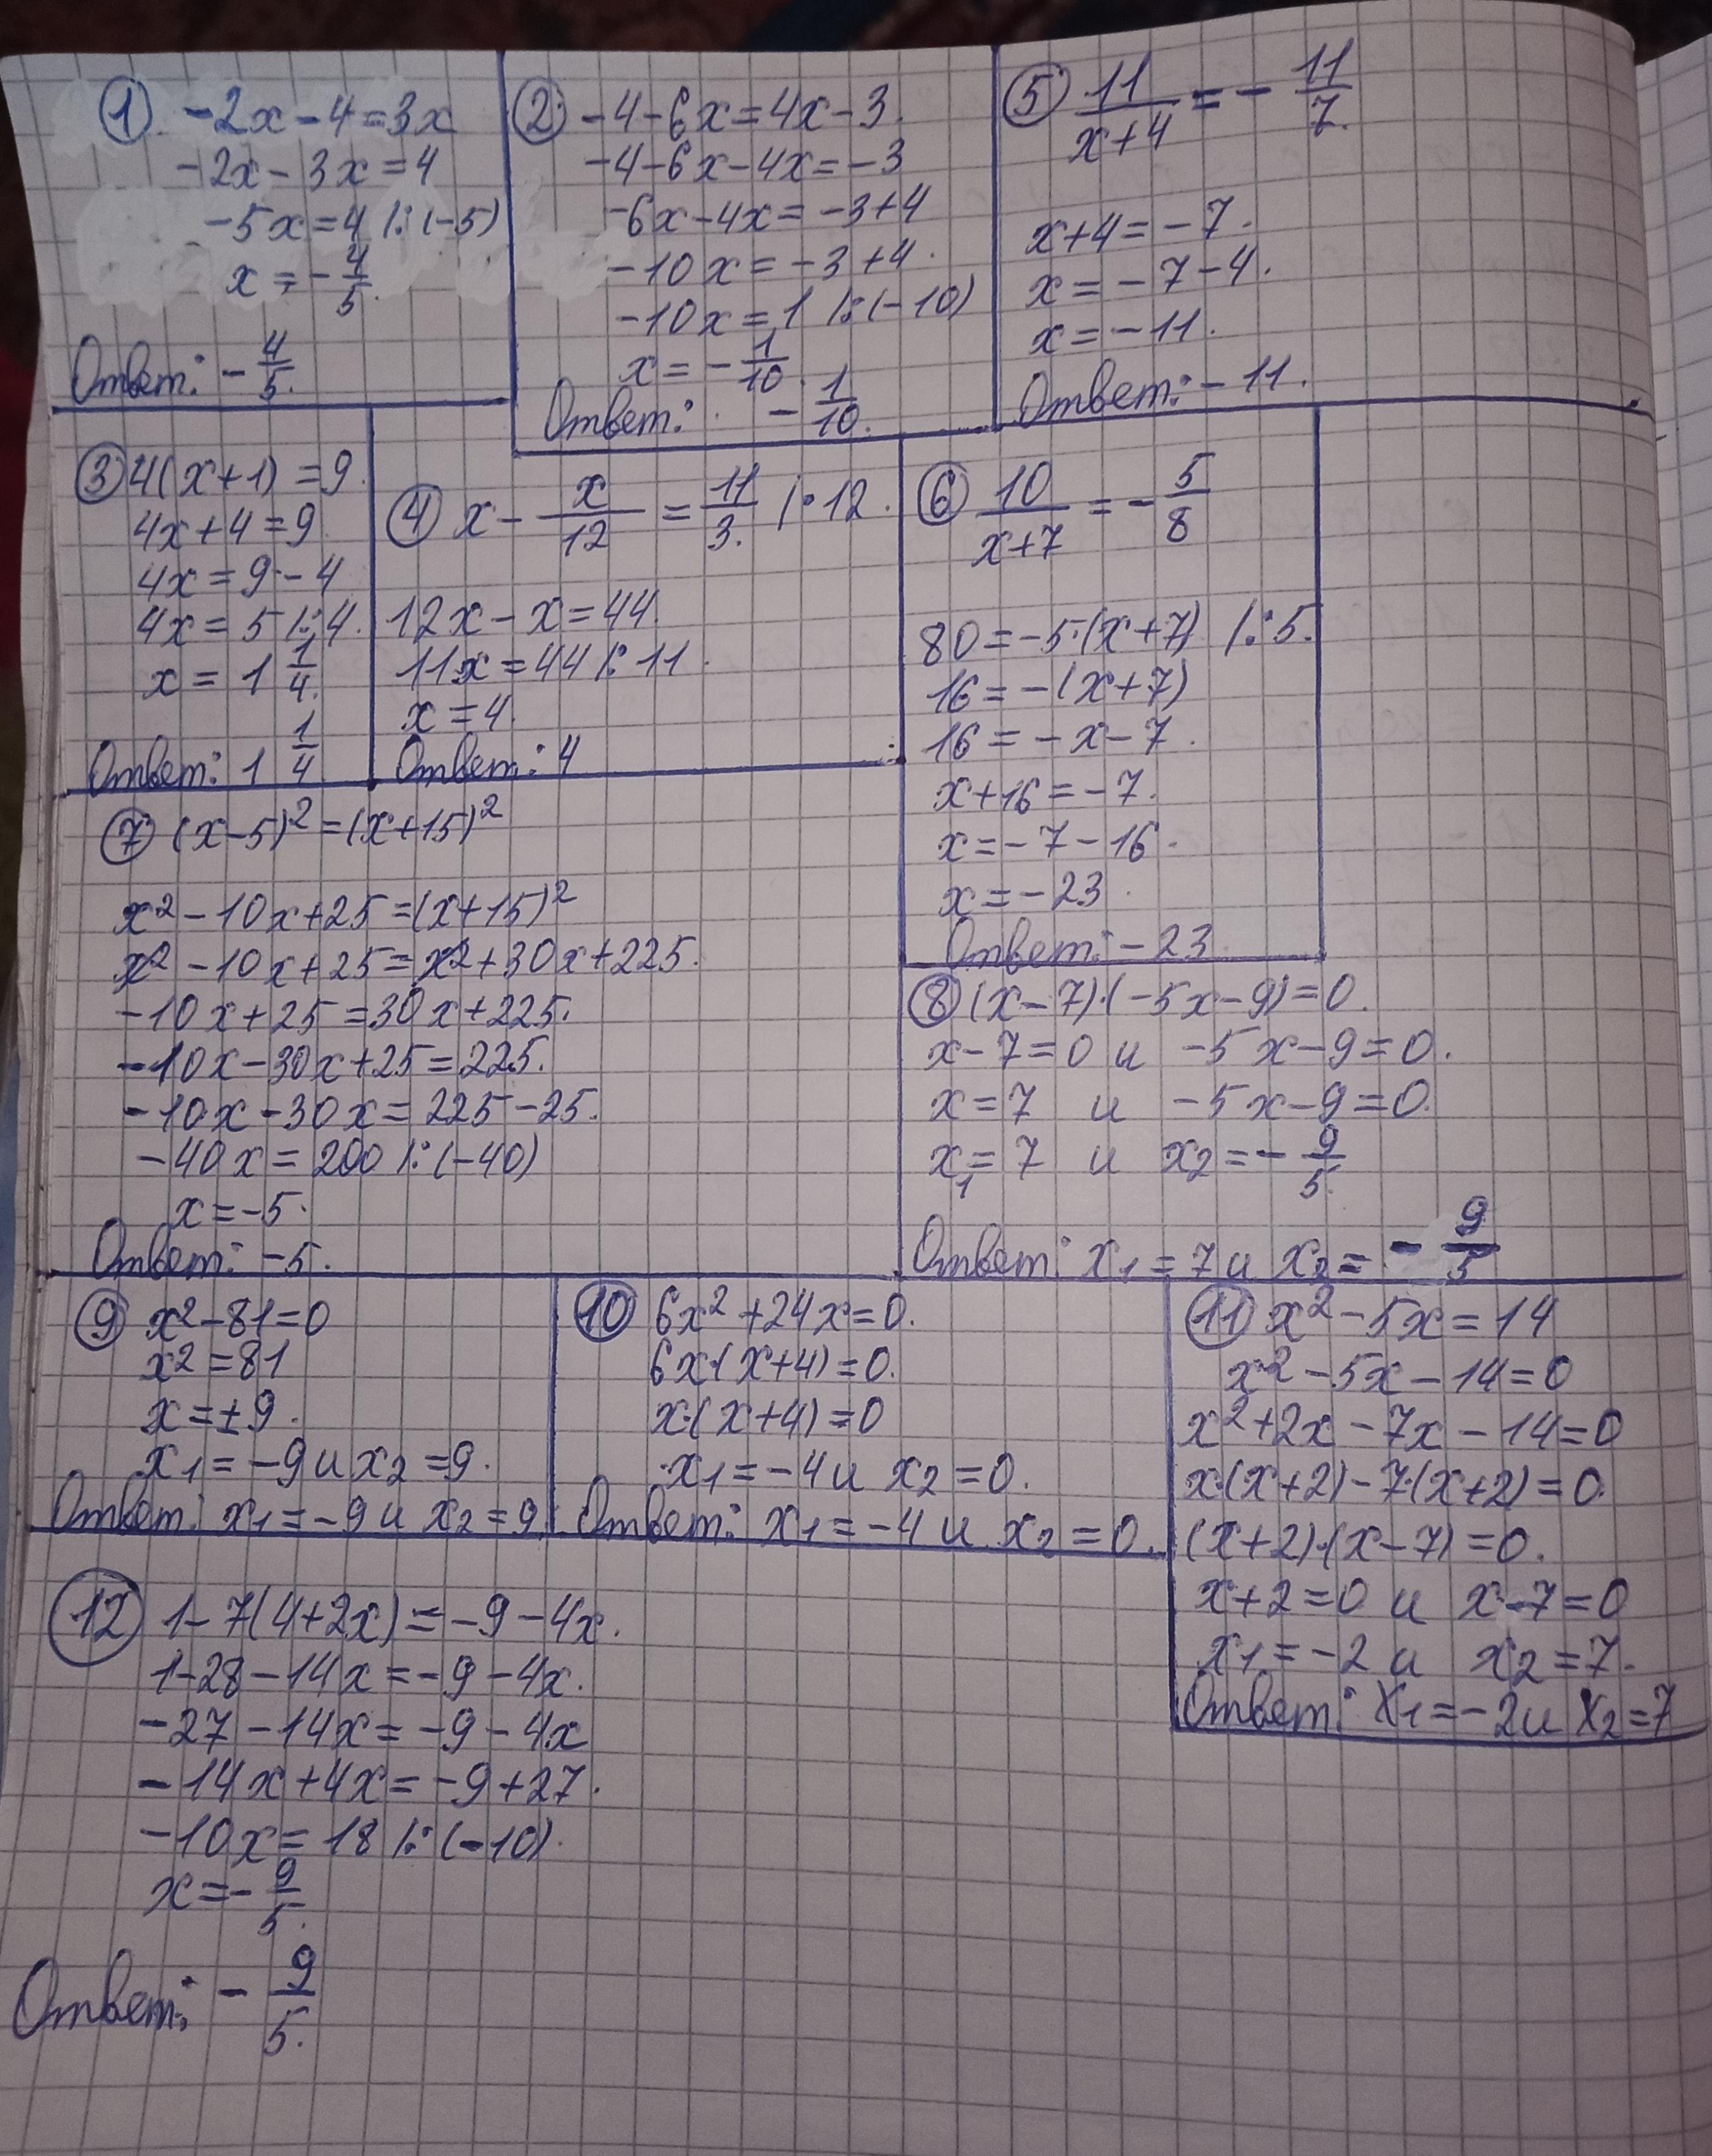 ① -2x-4=3x
-2x-3x=4
-5x=4 |:(-5)
x=-4/5.
Ответ: -4/5.
② -4-6x=4x-3.
-4-6x-4x=-3
-6x-4x=-3+4
-10x=-3+4.
-10x=1 |:(-10)
x=-1/10.
Ответ: -1/10.
⑤ 11/(x+4)=-11/7.
x+4=-7.
x=-7-4.
x=-11.
Ответ: -11.
③ 4(x+1)=9.
4x+4=9.
4x=9-4
4x=5 |:4.
x=1 1/4.
Ответ: 1 1/4.
④ x-x/12=11/3. |·12.
12x-x=44.
11x=44 |:11.
x=4.
Ответ: 4
⑥ 10/(x+7)=-5/8
80=-5·(x+7) |:5.
16=-(x+7)
16=-x-7.
x+16=-7.
x=-7-16.
x=-23.
Ответ: -23.
⑦ (x-5)²=(x+15)²
x²-10x+25=(x+15)²
x²-10x+25=x²+30x+225.
-10x+25=30x+225.
-10x-30x+25=225.
-10x-30x=225-25.
-40x=200 |:(-40)
x=-5.
Ответ: -5.
⑧ (x-7)·(-5x-9)=0.
x-7=0 и -5x-9=0.
x=7 и -5x-9=0.
x₁=7 и x₂=-9/5.
Ответ: x₁=7 и x₂=-9/5
⑨ x²-81=0
x²=81
x=±9.
x₁=-9 и x₂=9.
Ответ: x₁=-9 и x₂=9.
⑩ 6x²+24x=0.
6x·(x+4)=0.
x·(x+4)=0
x₁=-4 и x₂=0.
Ответ: x₁=-4 и x₂=0.
⑪ x²-5x=14
x²-5x-14=0
x²+2x-7x-14=0
x·(x+2)-7·(x+2)=0.
(x+2)·(x-7)=0.
x+2=0 и x-7=0
x₁=-2 и x₂=7.
Ответ: x₁=-2 и x₂=7
⑫ 1-7(4+2x)=-9-4x.
1-28-14x=-9-4x.
-27-14x=-9-4x
-14x+4x=-9+27.
-10x=18 |:(-10).
x=-9/5.
Ответ: -9/5.